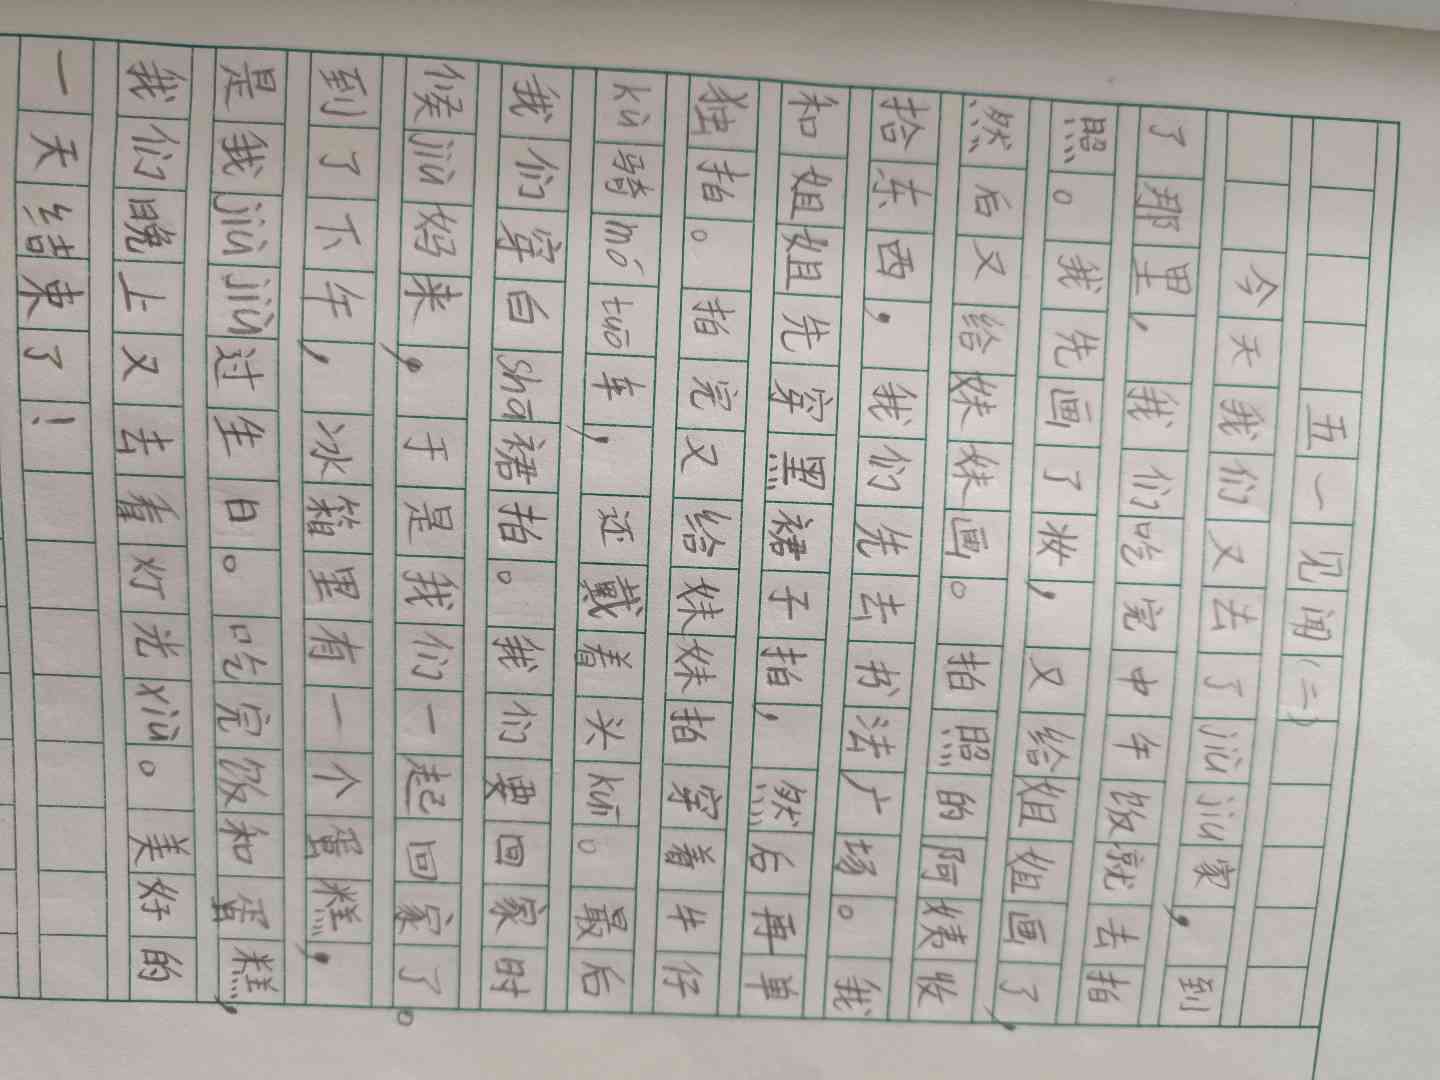 五一见闻(二)
今天我们又去了jiù jiù家,到
了那里,我们吃完中午饭就去拍
照。我先画了妆,又给姐姐画了,
然后又给妹妹画。拍照的阿姨收
拾东西,我们先去书法广场。我
和姐姐先穿黑裙子拍,然后再单
独拍。拍完又给妹妹拍穿着牛仔
kù骑mótuō车,还戴着头kuī。最后
我们穿白shā裙拍。我们要回家时
候jiù妈来,于是我们一起回家了。
到了下午,冰箱里有一个蛋糕,
是我jiù jiù过生日。吃完饭和蛋糕,
我们晚上又去看灯光xiù。美好的
一天结束了!